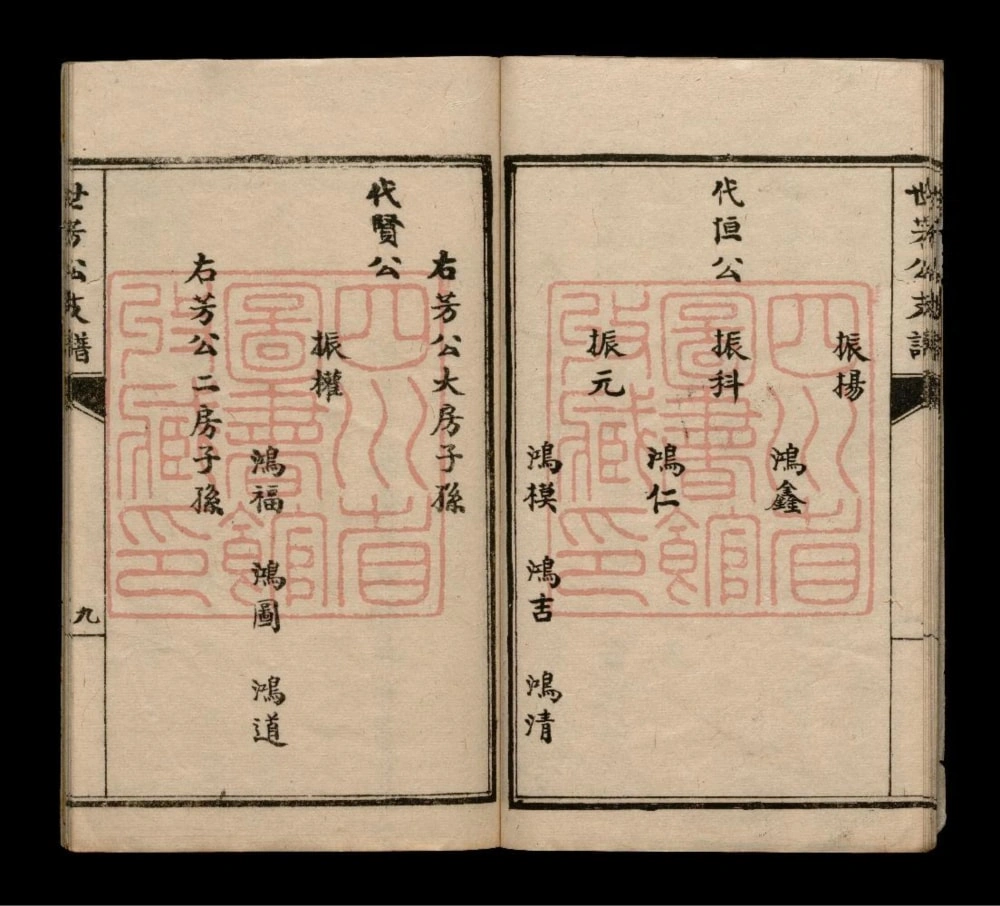 世芳公支譜
振揚
鴻鑫
代恒公 振科
鴻仁
振元
鴻模 鴻吉 鴻清
四川省
圖書館
收藏印
右芳公大房子孫
代賢公
振權
鴻福 鴻圖 鴻道
右芳公二房子孫
世芳公支譜 九
四川省
圖書館
收藏印